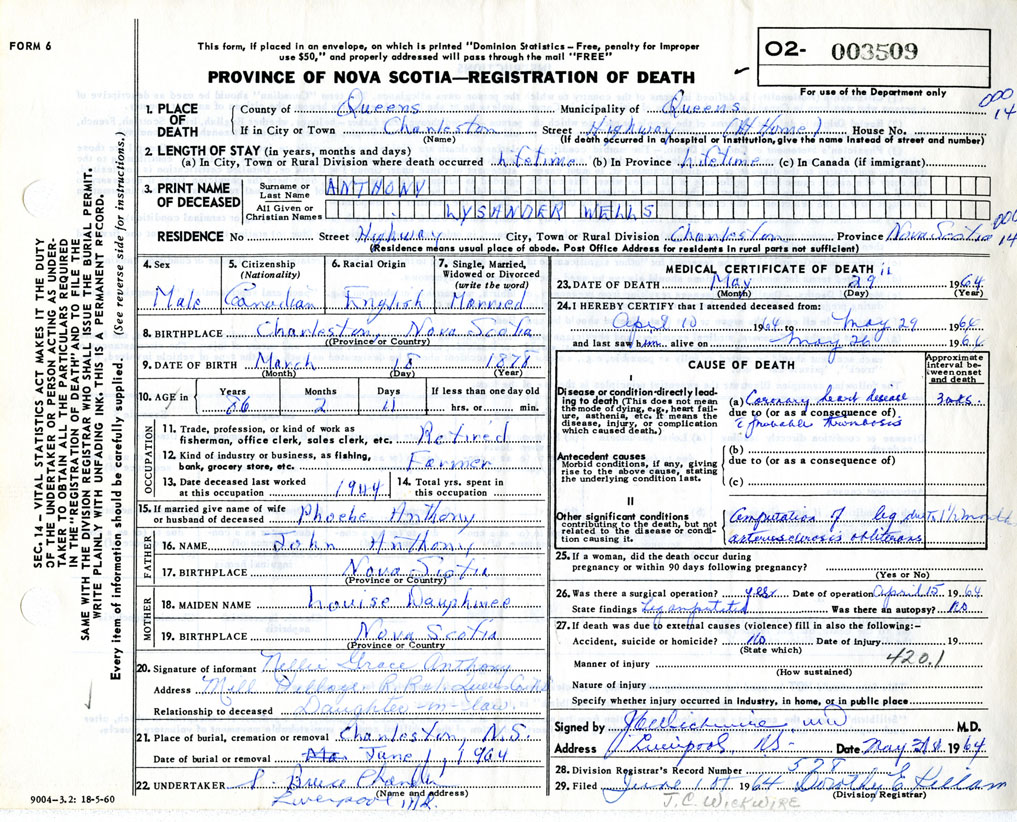 FORM 6
This form, if placed in an envelope, on which is printed "Dominion Statistics – Free, penalty for improper
use $50," and properly addressed will pass through the mail "FREE"
PROVINCE OF NOVA SCOTIA—REGISTRATION OF DEATH
O2- 003509
For use of the Department only
000
14
1. PLACE OF DEATH
County of Queens Municipality of Queens
If in City or Town Charleston Street Highway (At Home) House No.
(Name) (If death occurred in a hospital or institution, give the name instead of street and number)
2. LENGTH OF STAY (in years, months and days)
(a) In City, Town or Rural Division where death occurred lifetime (b) In Province lifetime (c) In Canada (if immigrant)
3. PRINT NAME OF DECEASED
Surname or Last Name ANTHONY
All Given or Christian Names LYSANDER WELLS
000
14
RESIDENCE No Street Highway City, Town or Rural Division Charleston Province Nova Scotia
(Residence means usual place of abode. Post Office Address for residents in rural parts not sufficient)
SEC. 14 – VITAL STATISTICS ACT MAKES IT THE DUTY
OF THE UNDERTAKER OR PERSON ACTING AS UNDER-
TAKER TO OBTAIN ALL THE PARTICULARS REQUIRED
IN THE "REGISTRATION OF DEATH" AND TO FILE THE
SAME WITH THE DIVISION REGISTRAR WHO SHALL ISSUE THE BURIAL PERMIT.
WRITE PLAINLY WITH UNFADING INK. THIS IS A PERMANENT RECORD.
Every item of information should be carefully supplied. (See reverse side for instructions.)
4. Sex 5. Citizenship (Nationality) 6. Racial Origin 7. Single, Married, Widowed or Divorced (write the word)
Male Canadian English Married
8. BIRTHPLACE Charleston, Nova Scotia
(Province or Country)
9. DATE OF BIRTH March 18 1878
(Month) (Day) (Year)
10. AGE in Years Months Days If less than one day old
86 2 11 hrs. or min.
OCCUPATION
11. Trade, profession, or kind of work as
fisherman, office clerk, sales clerk, etc. Retired
12. Kind of industry or business, as fishing,
bank, grocery store, etc. Farmer
13. Date deceased last worked at this occupation 1944 14. Total yrs. spent in this occupation
15. If married give name of wife
or husband of deceased Phoebe Anthony
FATHER
16. NAME John Anthony
17. BIRTHPLACE Nova Scotia
(Province or Country)
MOTHER
18. MAIDEN NAME Louise Dauphinee
19. BIRTHPLACE Nova Scotia
(Province or Country
20. Signature of informant Nellie Grace Anthony
Address Mill Village R.R.#1 Queens Co. N.S.
Relationship to deceased Daughter-in-law
21. Place of burial, cremation or removal Charleston N.S.
Date of burial or removal June 1, 1964
22. UNDERTAKER Bruce Chandler
(Name and address)
Liverpool N.S.
9004–3.2: 18-5-60
MEDICAL CERTIFICATE OF DEATH
23. DATE OF DEATH May 29 1964
(Month) (Day) (Year)
24. I HEREBY CERTIFY that I attended deceased from:
April 10 1964 to May 29 1964
and last saw him alive on May 26 1964
CAUSE OF DEATH
Approximate interval between onset and death
I
Disease or condition directly leading to death (This does not mean the mode of dying, e.g., heart failure, asthenia, etc. It means the disease, injury, or complication which caused death.)
(a) Coronary heart disease 3 wks.
due to (or as a consequence of)
c probable thrombosis
Antecedent causes
Morbid conditions, if any, giving rise to the above cause, stating the underlying condition last.
(b)
due to (or as a consequence of)
(c)
II
Other significant conditions
contributing to the death, but not related to the disease or condition causing it.
Amputation of leg due to 1½ months
arteriosclerosis obliterans
25. If a woman, did the death occur during
pregnancy or within 90 days following pregnancy?
(Yes or No)
26. Was there a surgical operation? yes Date of operation April 15 1964
State findings Leg amputated Was there an autopsy? No
27. If death was due to external causes (violence) fill in also the following:–
Accident, suicide or homicide? No Date of Injury 19
(State which)
420.1
Manner of injury
(How sustained)
Nature of injury
Specify whether injury occurred in industry, in home, or in public place
Signed by J C Wickwire MD M.D.
Address Liverpool, NS- Date May 31st. 1964
28. Division Registrar's Record Number 528
29. Filed June 1st 1964 Dorothy E. Kellam
(Division Registrar)
J.C. WICKWIRE